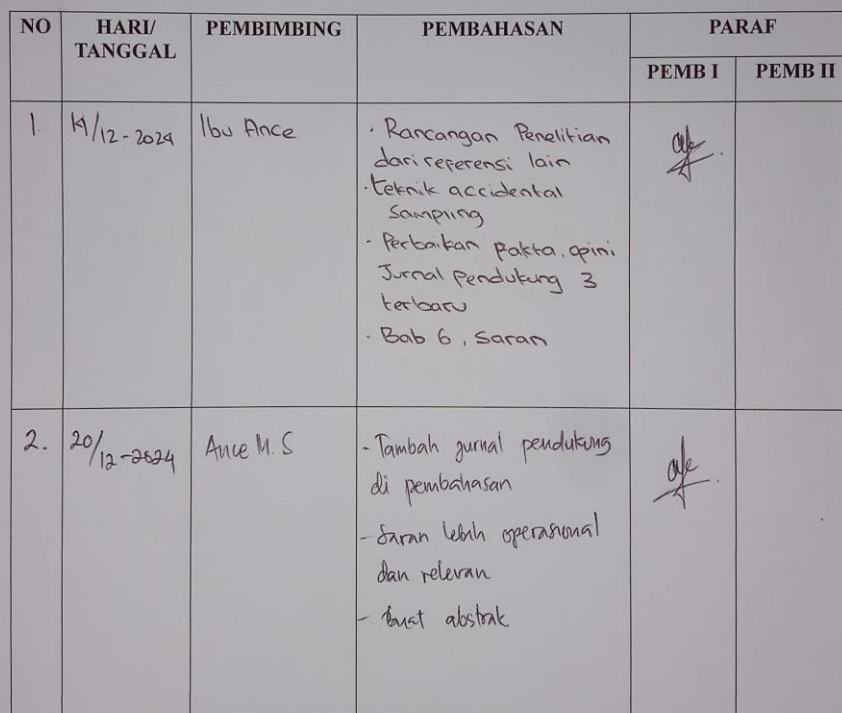 NO HARI/ TANGGAL PEMBIMBING PEMBAHASAN PARAF
PEMB I PEMB II
1. 19/12-2024 Ibu Ance
· Rancangan Penelitian
dari referensi lain
· Teknik accidental
Sampling
- Perbaikan pakta, opini
Jurnal pendukung 3
terbaru
· Bab 6, Saran
2. 20/12-2024 Ance M. S
- Tambah jurnal pendukung
di pembahasan
- Saran lebih operasional
dan relevan
- buat abstrak